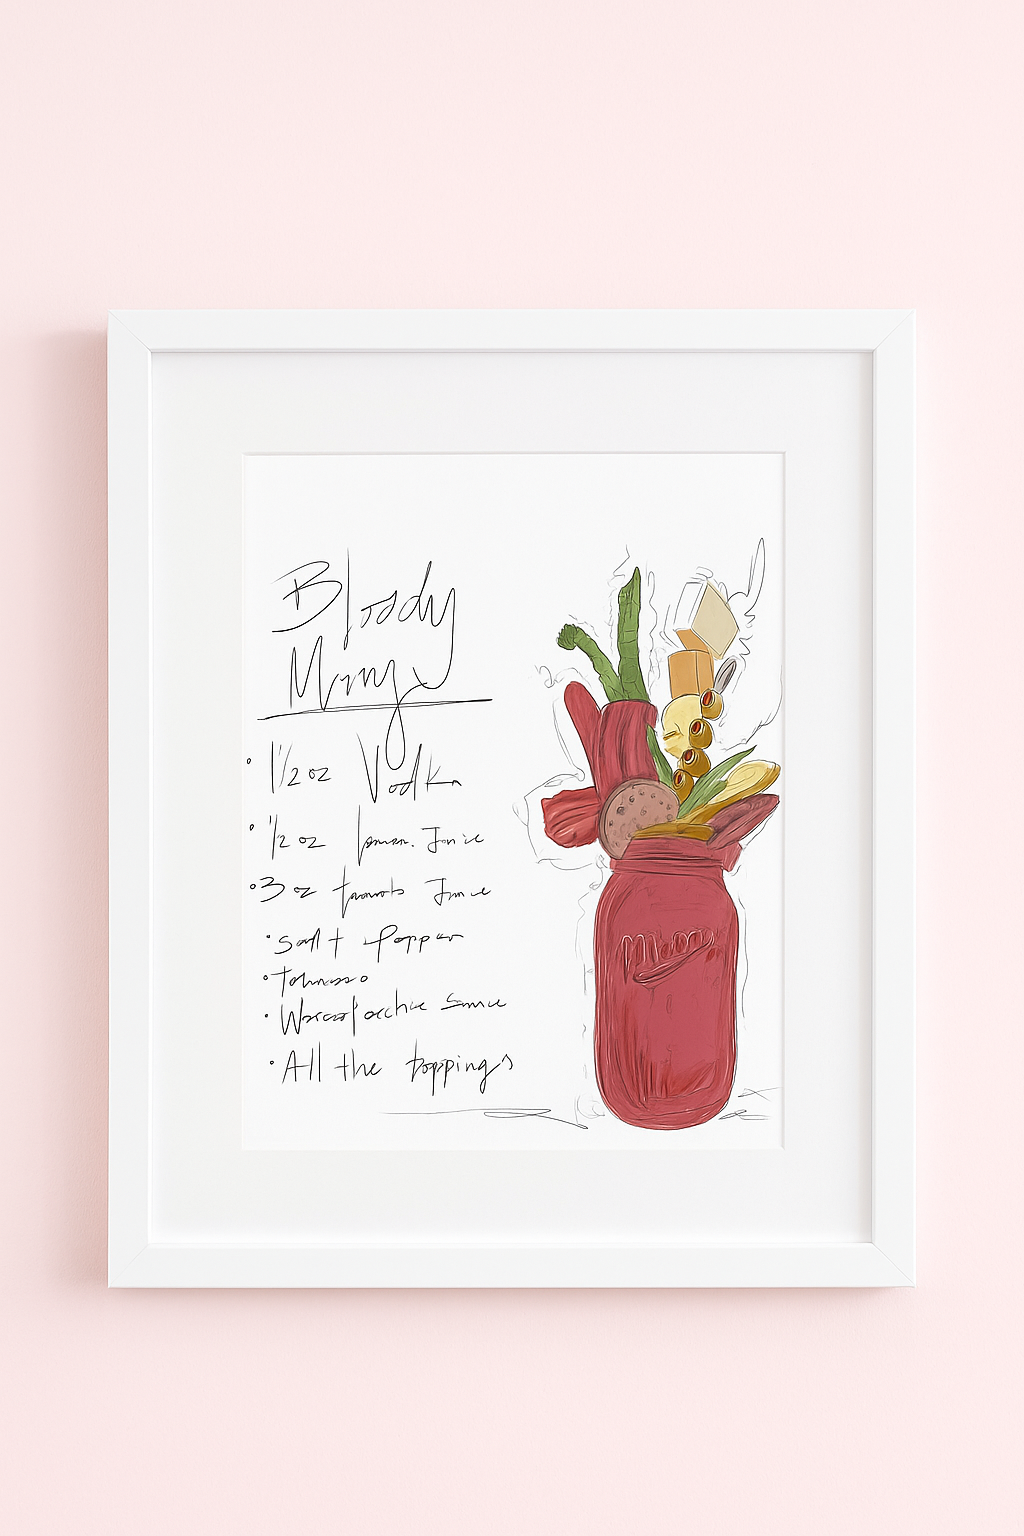 Bloody
Mary
• 1 1/2 oz Vodka
• 1/2 oz lemon Juice
• 3 oz tomato Juice
• Salt + Pepper
• Tobasso
• Worcestershire Sauce
• All the toppings